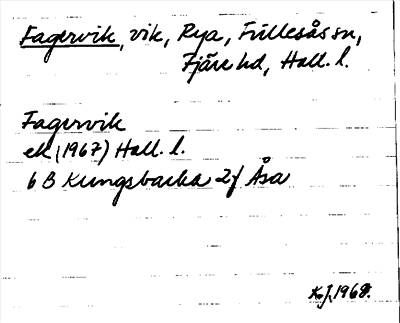 Fagervik, vik, Rya, Fillesås sn,
Fjäre hd, Hall. l.
Fagervik
ek (1967) Hall. l.
6 B Kungsbacka 2f Åsa
K.J. 1968.